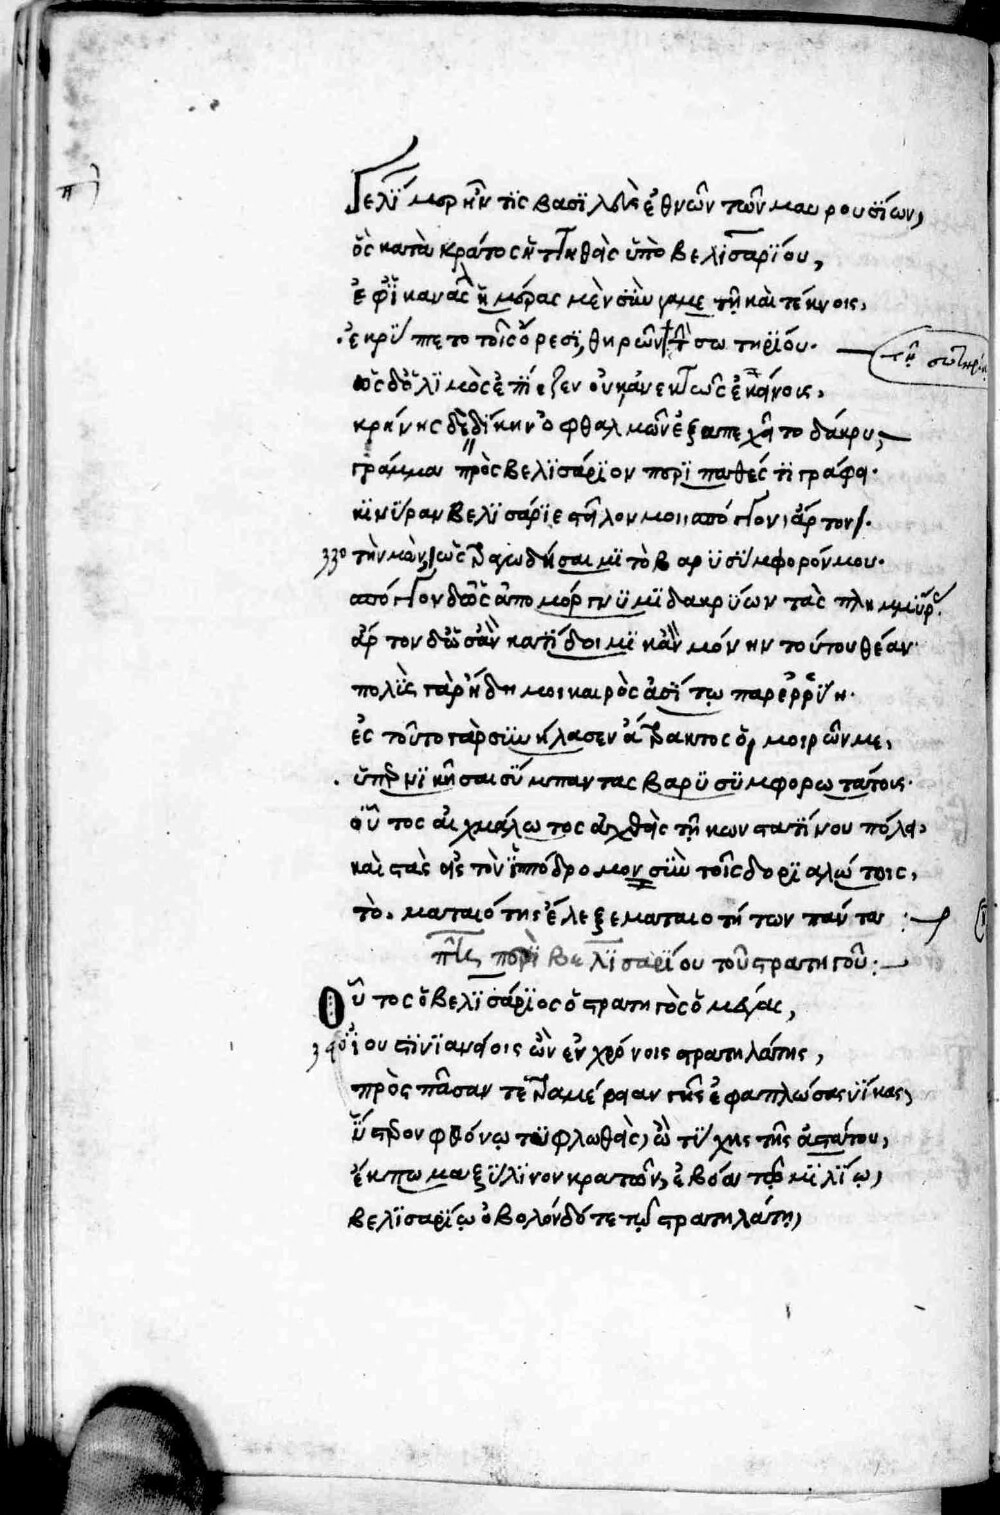 Γελίμορ ἦν τὶς βασιλεὺς ἐθνῶν τῶν μαυρουσίων,
ὃς κατὰ κράτος ἡττηθεὶς ὑπὸ βελισαρίου,
ἐφ' ἱκανὰς ἡμέρας μὲν σὺν γαμετῇ καὶ τέκνοις,
ἐκρύπτετο τοῖς ὄρεσι, θηρῶν τὴν σωτηρίου.
τὴν σωτηρίαν
ὡς δ' ὁ λιμὸς ἐπίεζεν οὐκ ἀνεκτῶς ἐκείνοις,
κρήνης δὲ δίκην ὀφθαλμῶν ἐξαπεχεῖτο δάκρυ,
γράμμα πρὸς βελισάριον περιπαθές τι γράφει.
κινύραν βελισάριε στεῖλον μοι σπόγγον ἄρτον.
330 τὴν μὲν, ὡς τραγωδήσαιμι τὸ βαρυσύμφορόν μου.
σπόγγον δ' ὡς ἀπομόργνυμι δακρύων τὰς πλημμύρας.
ἄρτον δ' ὡς ἂν κατίδοιμι κἂν μόνην τούτου θέαν.
πολὺς γὰρ ἤδη μοι καιρὸς ἀσίτῳ παρερρύη.
ἐς τοῦτο γὰρ συνήλασεν ἄτρακτος ὁ μοιρῶν με,
ὑπερνικῆσαι σύμπαντας βαρυσυμφορωτάτοις.
οὗτος αἰχμάλωτος ἀχθεὶς τῇ κωνσταντίνου πόλει,
καὶ στὰς εἰς τὸν ἱππόδρομον σὺν τοῖς δοριαλώτοις,
τὸ, ματαιότης ἔλεξε ματαιοτήτων πάντα :
περὶ βελισαρίου τοῦ στρατηγοῦ :
Οὗτος ὁ βελισάριος ὁ στρατηγὸς ὁ μέγας,
340 ἰουστινιανείοις ὢν ἐν χρόνοις στρατηλάτης,
πρὸς πᾶσαν τετραμέρειαν γῆς ἐφαπλώσας νίκας,
ὕστερον φθόνῳ τυφλωθεὶς, ὢ τύχης τῆς ἀστάτου,
ἔκπωμα ξύλινον κρατῶν, ἐβόα τῷ μιλίῳ,
βελισαρίῳ ὀβολὸν δότε τῷ στρατηλάτῃ,